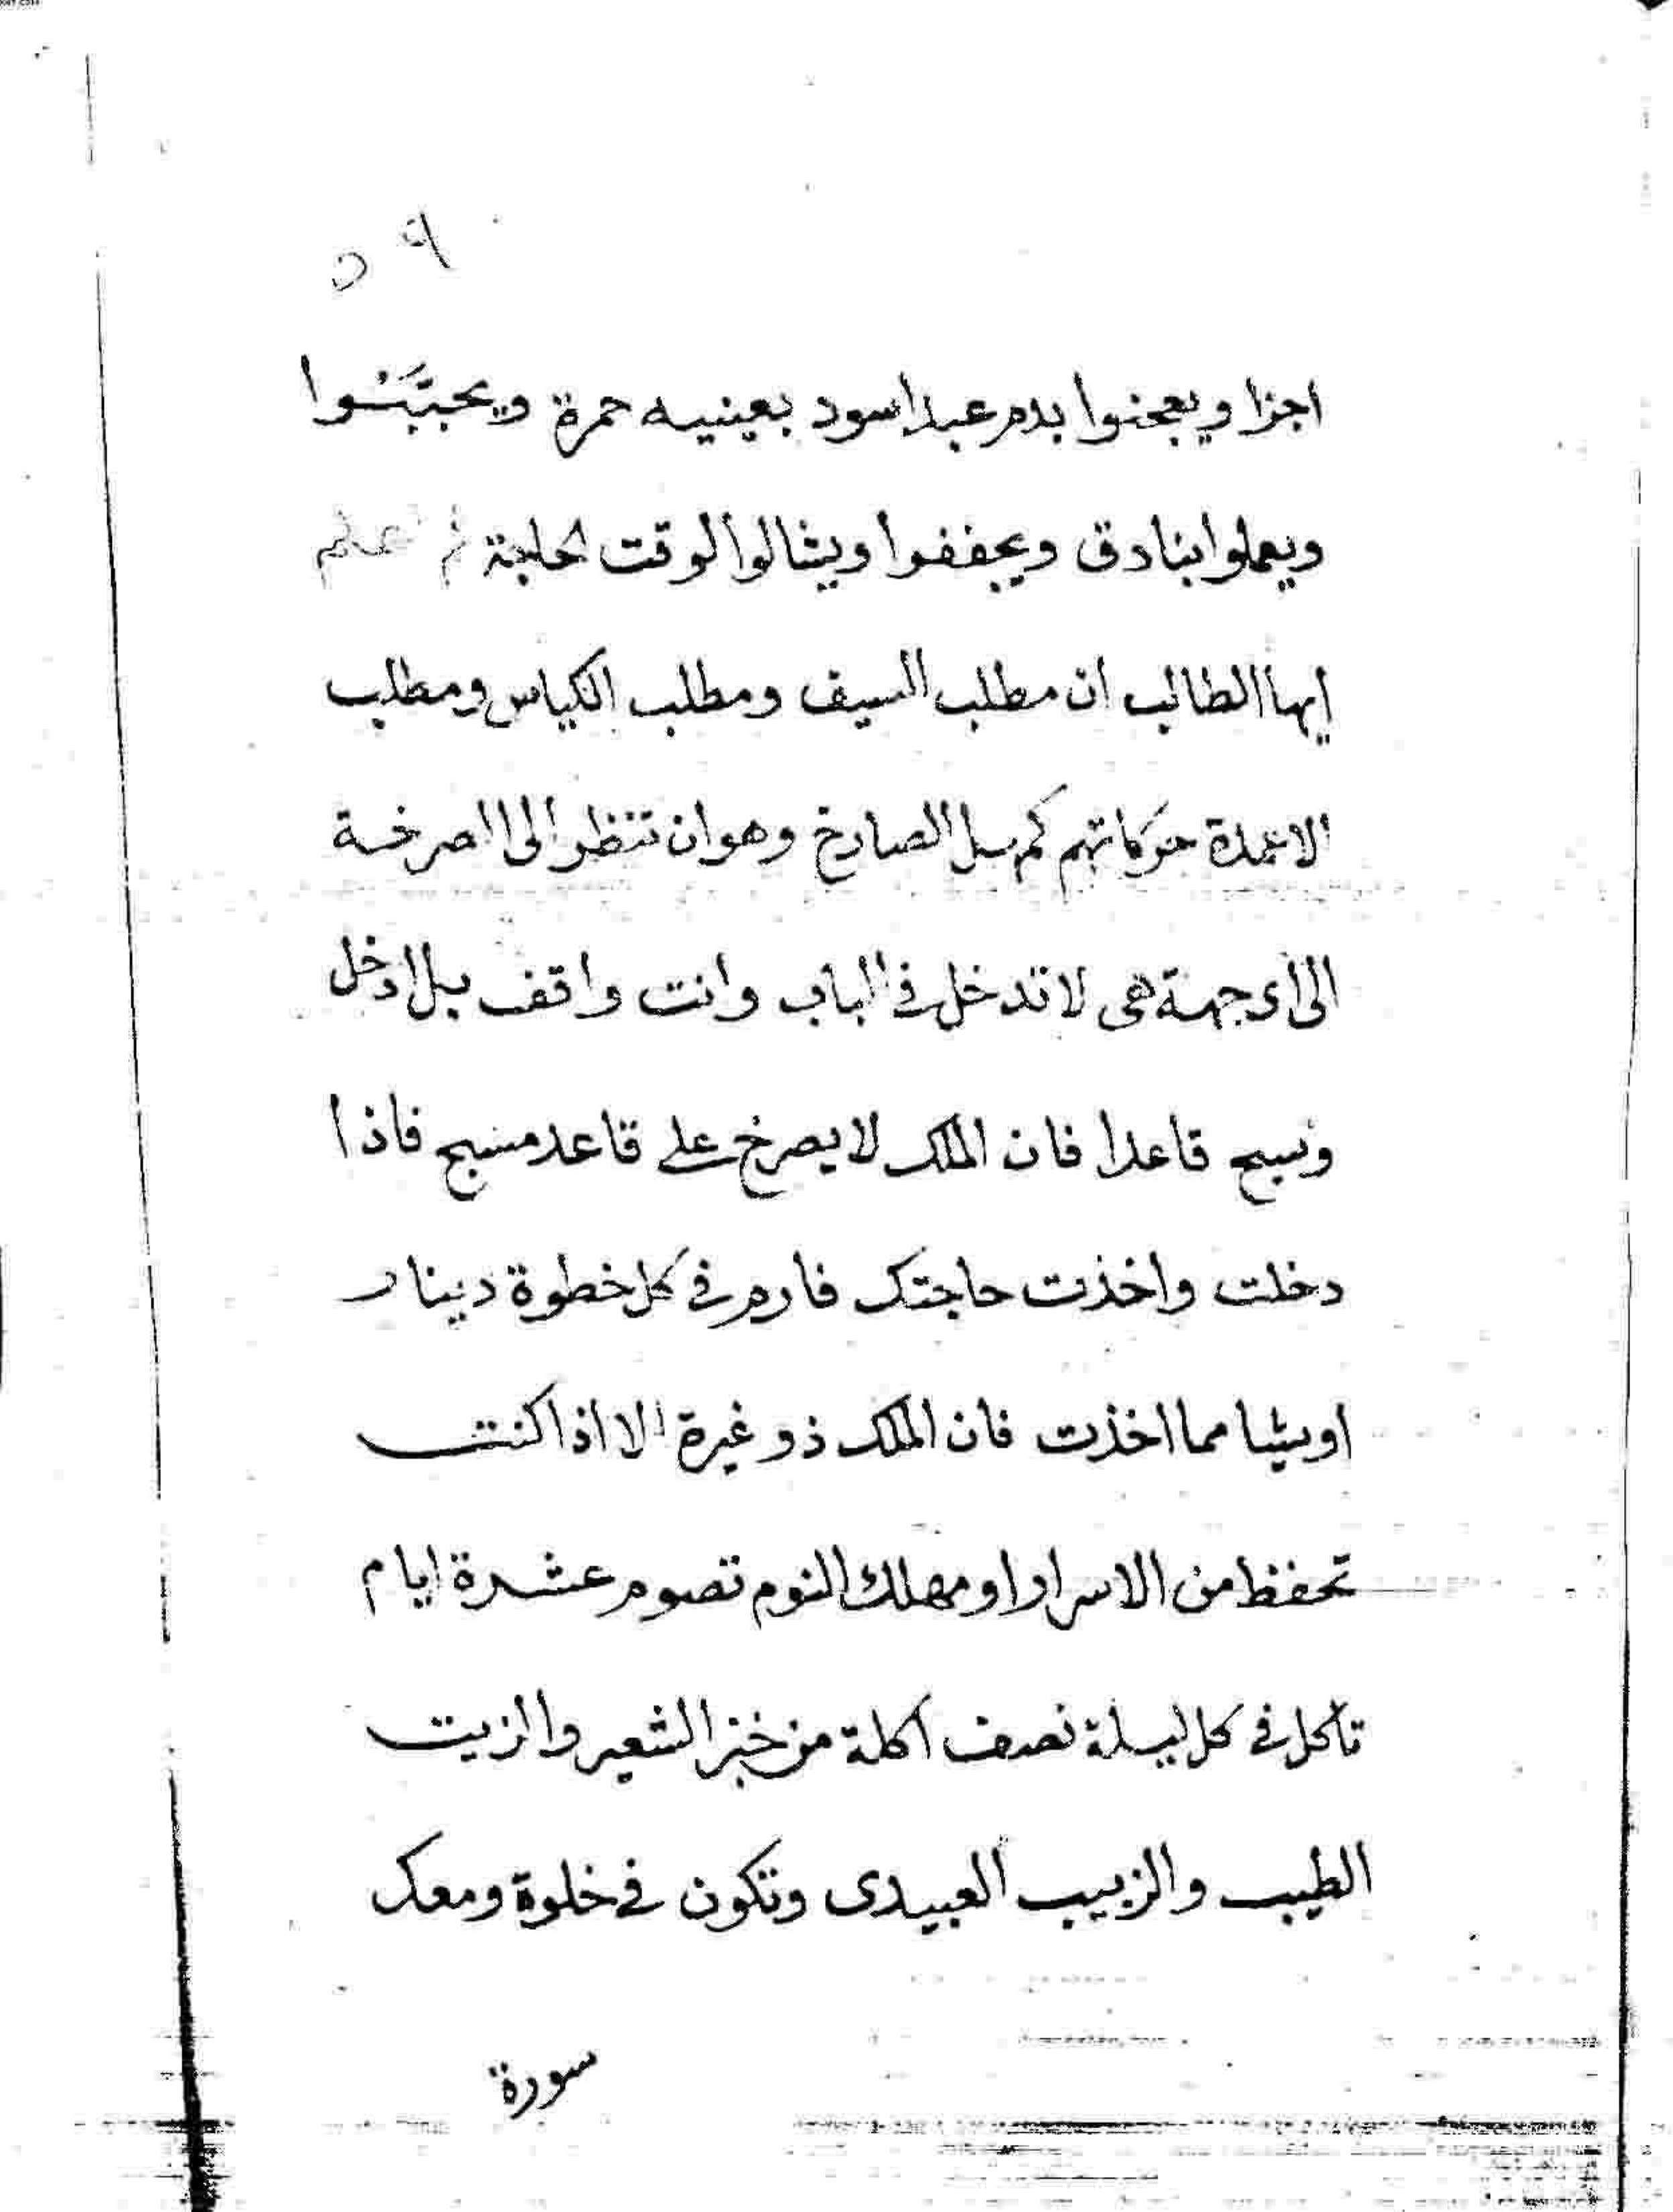 ٥٩
اجزا ويعجنوا بدم عبد اسود بعينيه حمرة ويحببنوا
ويعملوا بنادق ويجففوا ويشالوا لوقت الحاجة ثم اعلم
ايها الطالب ان مطلب السيف ومطلب الكياس ومطلب
الاعمدة حركاتهم الصارخ وهو ان تنظر الى الصرخة
الى اى جهة هى لا تدخل فى الباب وانت واقف بل ادخل
وسبح قاعدا فان الملك لا يصرخ على قاعد مسبح فاذا
دخلت واخذت حاجتك فارم فى كل خطوة دينار
او شيا مما اخذت فان الملك ذو غيرة الا اذا كنت
تحفظ من الاسرار او مهلك النوم تصوم عشرة ايام
تأكل فى كل ليلة نصف اكلة من خبز الشعير والزيت
الطيب والزبيب العبيدى وتكون فى خلوة ومعك
سورة